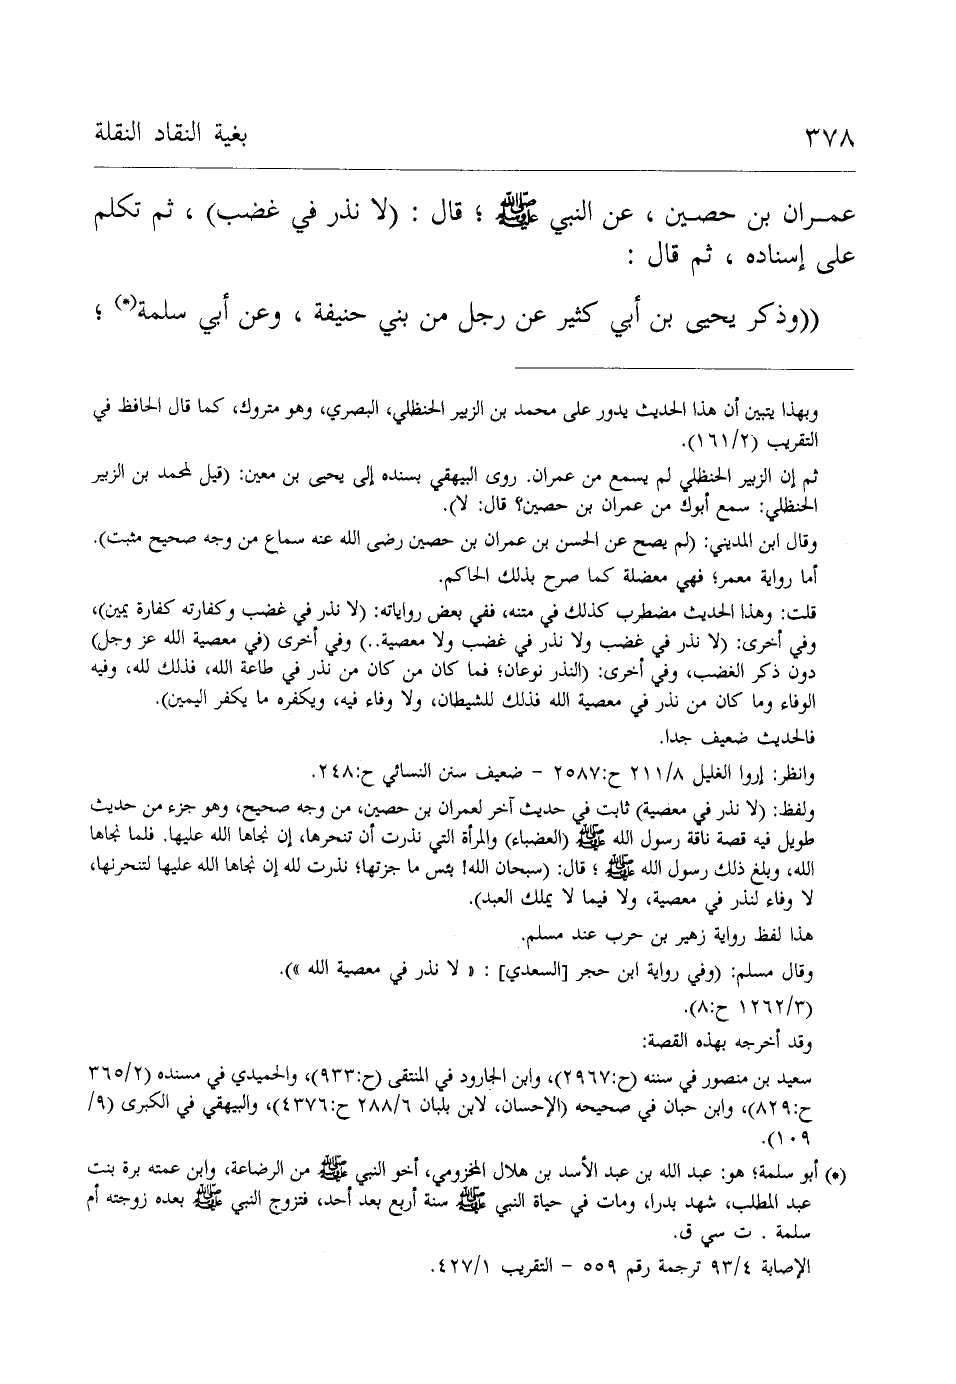 ٣٧٨
بغية النقاد النقلة
عمـران بن حصـين ، عن النبي ﷺ ؛ قال : (لا نذر في غضب) ، ثم تكلم
على إسناده ، ثم قال :
((وذكر يحيى بن أبي كثير عن رجل من بني حنيفة ، وعن أبي سلمة(*) ؛
وبهذا يتبين أن هذا الحديث يدور على محمد بن الزبير الحنظلي، البصري، وهو متروك، كما قال الحافظ في
التقريب (١٦١/٢).
ثم إن الزبير الحنظلي لم يسمع من عمران. روى البيهقي بسنده إلى يحيى بن معين: (قيل لمحمد بن الزبير
الحنظلي: سمع أبوك من عمران بن حصين؟ قال: لا).
وقال ابن المديني: (لم يصح عن الحسن بن عمران بن حصين رضى الله عنه سماع من وجه صحيح مثبت).
أما رواية معمر؛ فهي معضلة كما صرح بذلك الحاكم.
قلت: وهذا الحديث مضطرب كذلك في متنه، ففي بعض رواياته: (لا نذر في غضب وكفارته كفارة يمين)،
وفي أخرى: (لا نذر في غضب ولا نذر في غضب ولا معصية..) وفي أخرى (في معصية الله عز وجل)
دون ذكر الغضب، وفي أخرى: (النذر نوعان؛ فما كان من كان من نذر في طاعة الله، فذلك لله، وفيه
الوفاء وما كان من نذر في معصية الله فذلك للشيطان، ولا وفاء فيه، ويكفره ما يكفر اليمين).
فالحديث ضعيف جدا.
وانظر: إروا الغليل ٢١١/٨ ح:٢٥٨٧ - ضعيف سنن النسائي ح:٢٤٨.
ولفظ: (لا نذر في معصية) ثابت في حديث آخر لعمران بن حصين، من وجه صحيح، وهو جزء من حديث
طويل فيه قصة ناقة رسول الله ﷺ (العضباء) والمرأة التي نذرت أن تنحرها، إن نجاها الله عليها. فلما نجاها
الله، وبلغ ذلك رسول الله ﷺ ؛ قال: (سبحان الله! بئس ما جزتها؛ نذرت لله إن نجاها الله عليها لتنحرنها،
لا وفاء لنذر في معصية، ولا فيما لا يملك العبد).
هذا لفظ رواية زهير بن حرب عند مسلم.
وقال مسلم: (وفي رواية ابن حجر [السعدي] : « لا نذر في معصية الله »).
(١٢٦٢/٣ ح:٨).
وقد أخرجه بهذه القصة:
سعيد بن منصور في سننه (ح:٢٩٦٧)، وابن الجارود في المنتقى (ح:٩٣٣)، والحميدي في مسنده (٣٦٥/٢
ح:٨٢٩)، وابن حبان في صحيحه (الإحسان، لابن بلبان ٢٨٨/٦ ح:٤٣٧٦)، والبيهقي في الكبرى (٩/
١٠٩).
(*) أبو سلمة؛ هو: عبد الله بن عبد الأسد بن هلال المخزومي، أخو النبي ﷺ من الرضاعة، وابن عمته برة بنت
عبد المطلب، شهد بدرا، ومات في حياة النبي ﷺ سنة أربع بعد أحد، فتزوج النبي ﷺ بعده زوجته أم
سلمة . ت سي ق.
الإصابة ٩٣/٤ ترجمة رقم ٥٥٩ - التقريب ٤٢٧/١.